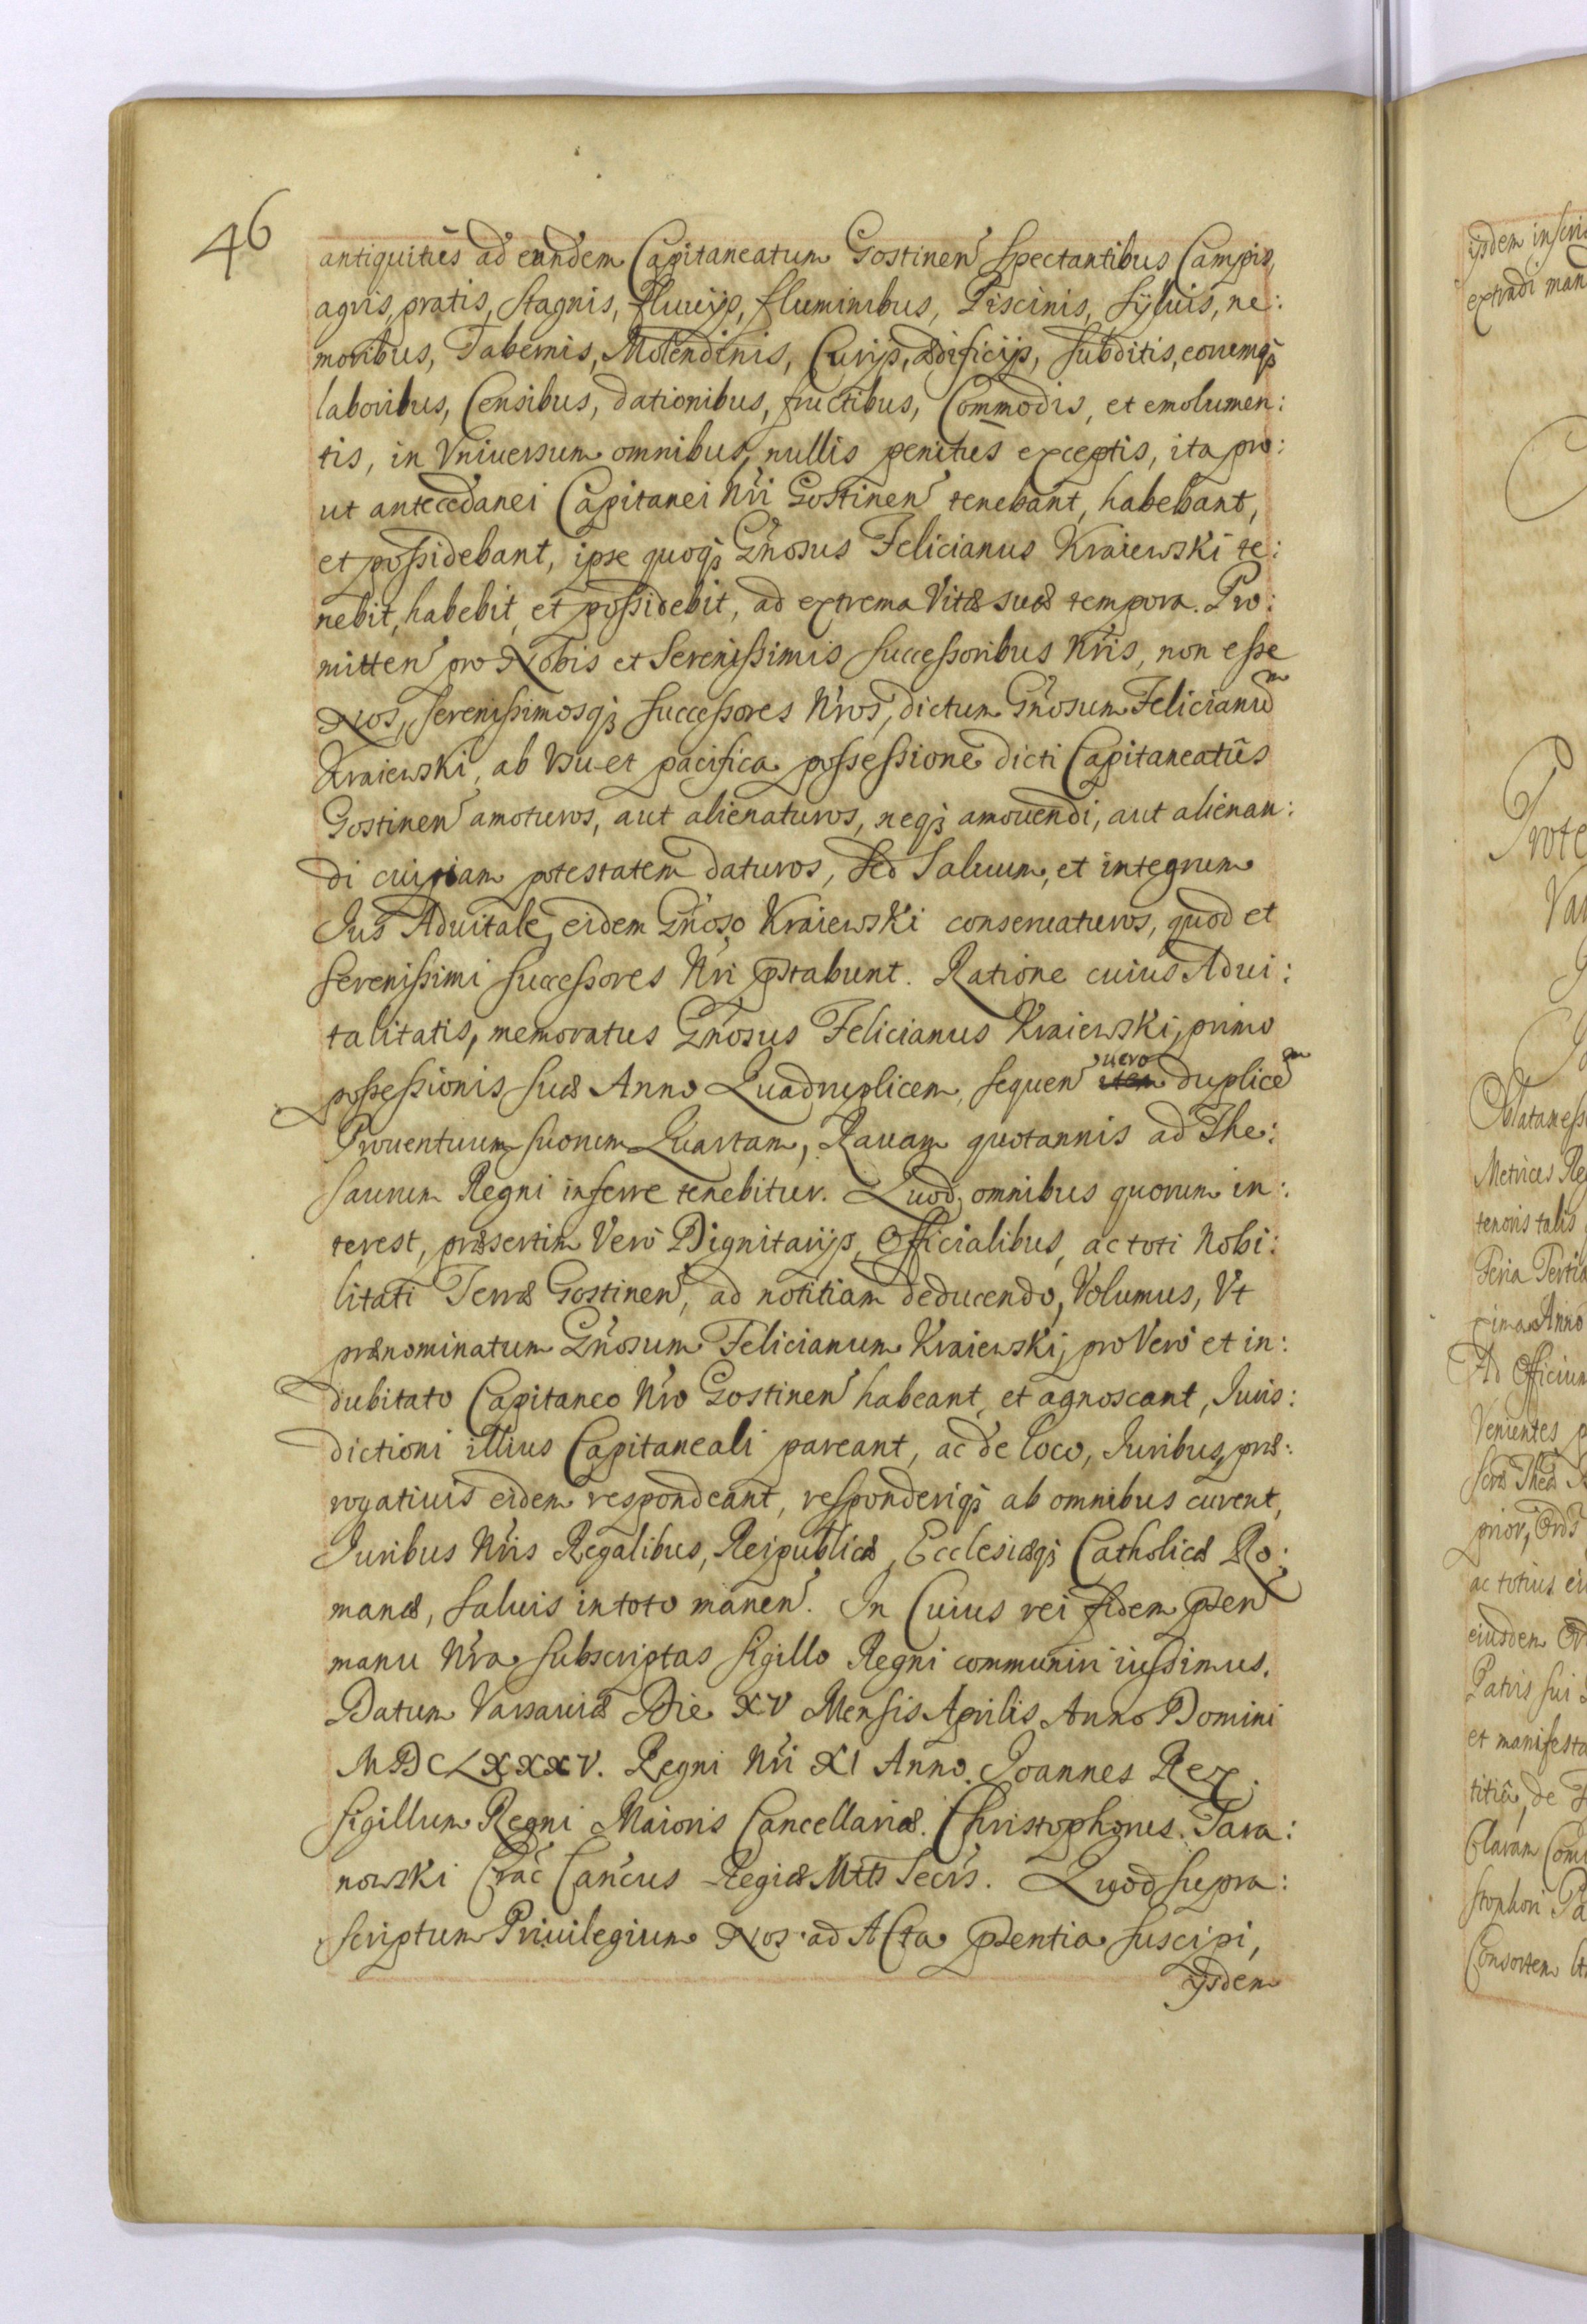 46
antiquitùs ad eundem Capitaneatum Gostinen̄ spectantibus Campis,
agris, pratis, stagnis, fluuijs, fluminibus, Piscinis, syluis, ne:
moribus, Tabernis, Molendinis, Curijs, ædificijs, subditis, eorumq3
laboribus, Censibus, dationibus, fructibus, Commodis, et emolumen:
tis, in Vniuersum omnibus, nullis penitùs exceptis, ita pro:
ut antecedanei Capitanei Nr̄i Gostinen̄ tenebant, habebant,
et possidebant, ipse quoq3 Gn̄osus Felicianus Kraiewski te:
nebit, habebit, et possidebit, ad extrema Vitæ suæ tempora. Pro:
mitten̄ pro Nobis et Serenissimis successoribus Nr̄is, non esse
Nos, serenissimosq3 successores Nr̄os, dictum Gn̄osum Felicianum
Kraiewski, ab Vsu et pacifica possessione dicti Capitaneatûs
Gostinen̄ amoturos, aut alienaturos, neq3 amouendi, aut alienan:
di cuipiam potestatem daturos, sed Saluum, et integrum
Jus Aduitale, eidem Gn̄oso Kraiewski conseruaturos, quod et
serenissimi successores Nr̄i p̄stabunt. Ratione cuius Adui:
talitatis, memoratus Gn̄osus Felicianus Kraiewski, primo
possessionis suæ Anno Quadruplicem, sequen̄ item uero duplicem
Prouentuum suorum Quartam, Rauam quotannis ad The:
saurum Regni inferre tenebitur. Quod omnibus quorum in:
terest, præsertim Verò Dignitarijs, Officialibus, ac toti Nobi:
litati Terræ Gostinen̄, ad notitiam deducendo, Volumus, Vt
prænominatum Gn̄osum Felicianum Kraiewski, pro Vero et in:
dubitato Capitaneo Nr̄o Gostinen̄ habeant, et agnoscant, Juris:
dictioni illius Capitaneali pareant, ac de loco, Juribus, præ:
rogatiuis eidem respondeant, responderiq3 ab omnibus curent,
Juribus Nr̄is Regalibus, Reipublicæ, Ecclesiæq3 Catholicæ Ro:
manæ, saluis in toto manen̄. In Cuius rei fidem p̄sen̄
manu Nr̄a subscriptas sigillo Regni communiri iussimus.
Datum Varsauiæ Die XV Mensis Aprilis Anno Domini
MDCLXXXV. Regni Nr̄i XI Anno. Joannes Rex.
Sigillum Regni Maioris Cancellariæ. Christophorus Tara:
nowski Crac̄ Can̄cus Regiæ Mttis Secr̄s. Quod supra:
scriptum Priuilegium Nos ad Acta p̄sentia suscipi,
ijsdem
ijsdem inscri
extradi man
Prote
Va
Metrices Re
tenoris talis
Feria Tertia
Anno
Ad Officium
Venientes p
prior, Ord
ac totius
eiusdem Or
Patris sui
et manifesta
titiâ, de
Claram Com
stophori Pa
Consortem